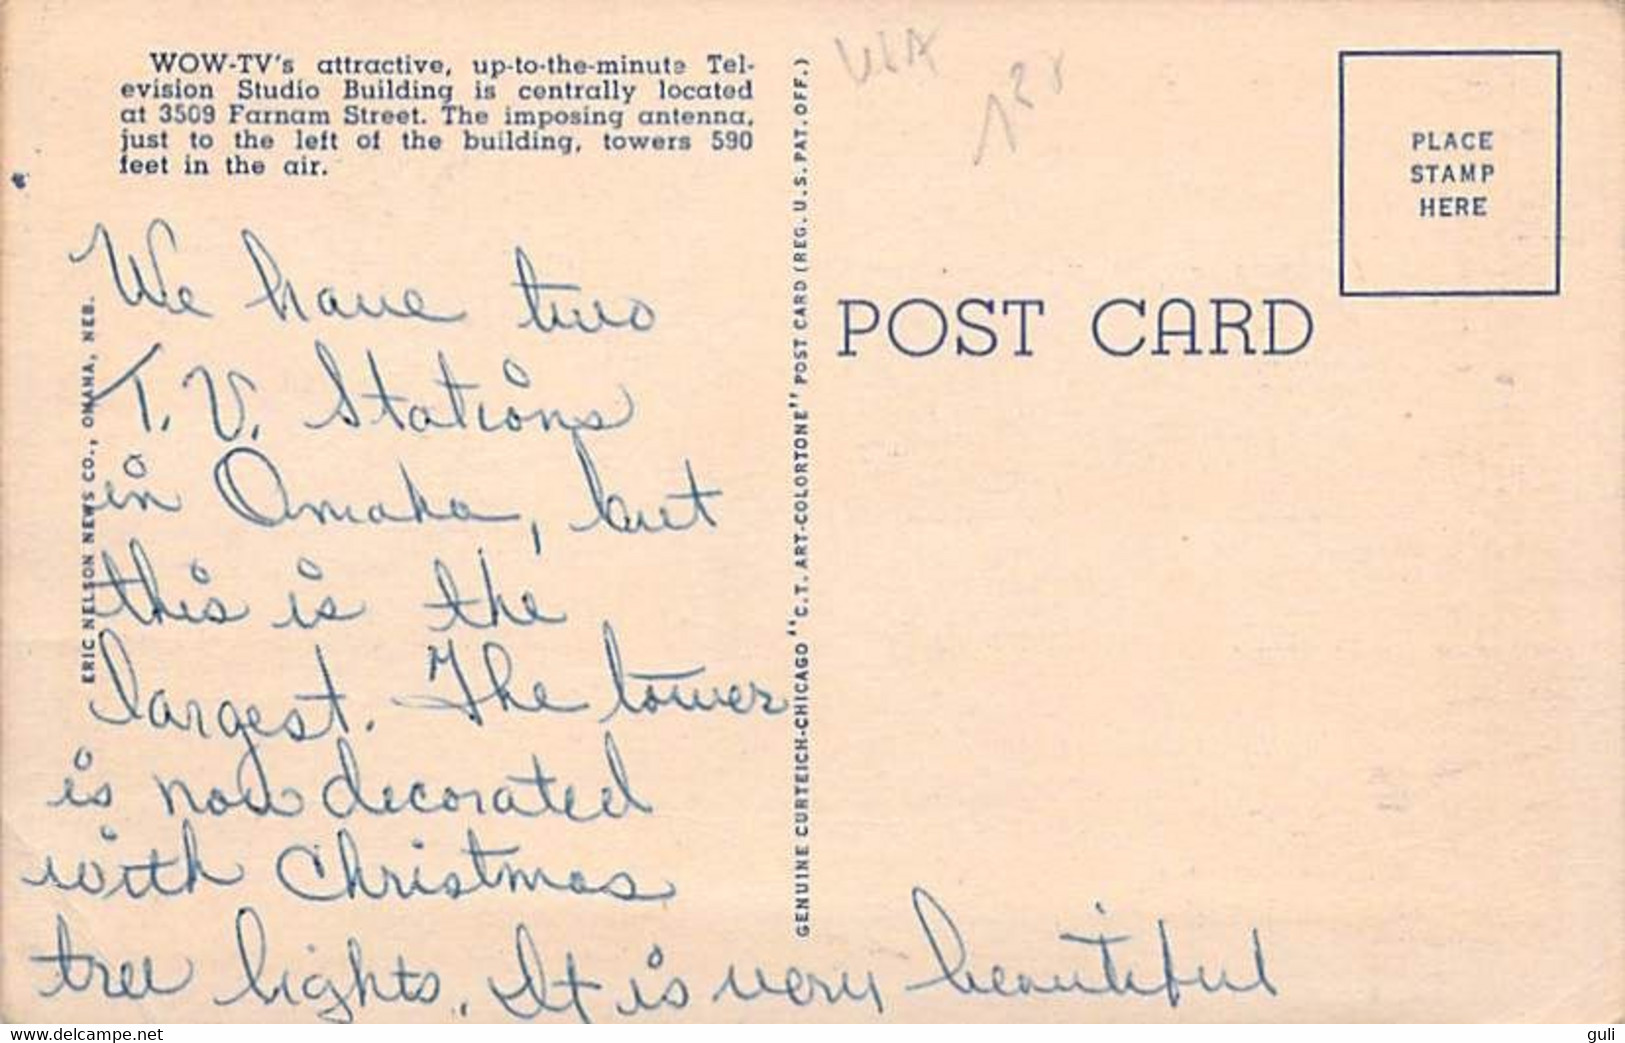 WOW-TV's attractive, up-to-the-minute Tel-
evision Studio Building is centrally located
at 3509 Farnam Street. The imposing antenna,
just to the left of the building, towers 590
feet in the air.
We have two
T.V. Stations
in Omaha, but
this is the
largest. The tower
is now decorated
with Christmas
tree lights. It is very beautiful
ERIC NELSON NEWS CO., OMAHA, NEB.
GENUINE CURTEICH-CHICAGO "C.T. ART-COLORTONE" POST CARD (REG. U.S. PAT. OFF.)
USA
POST CARD
PLACE
STAMP
HERE
guli